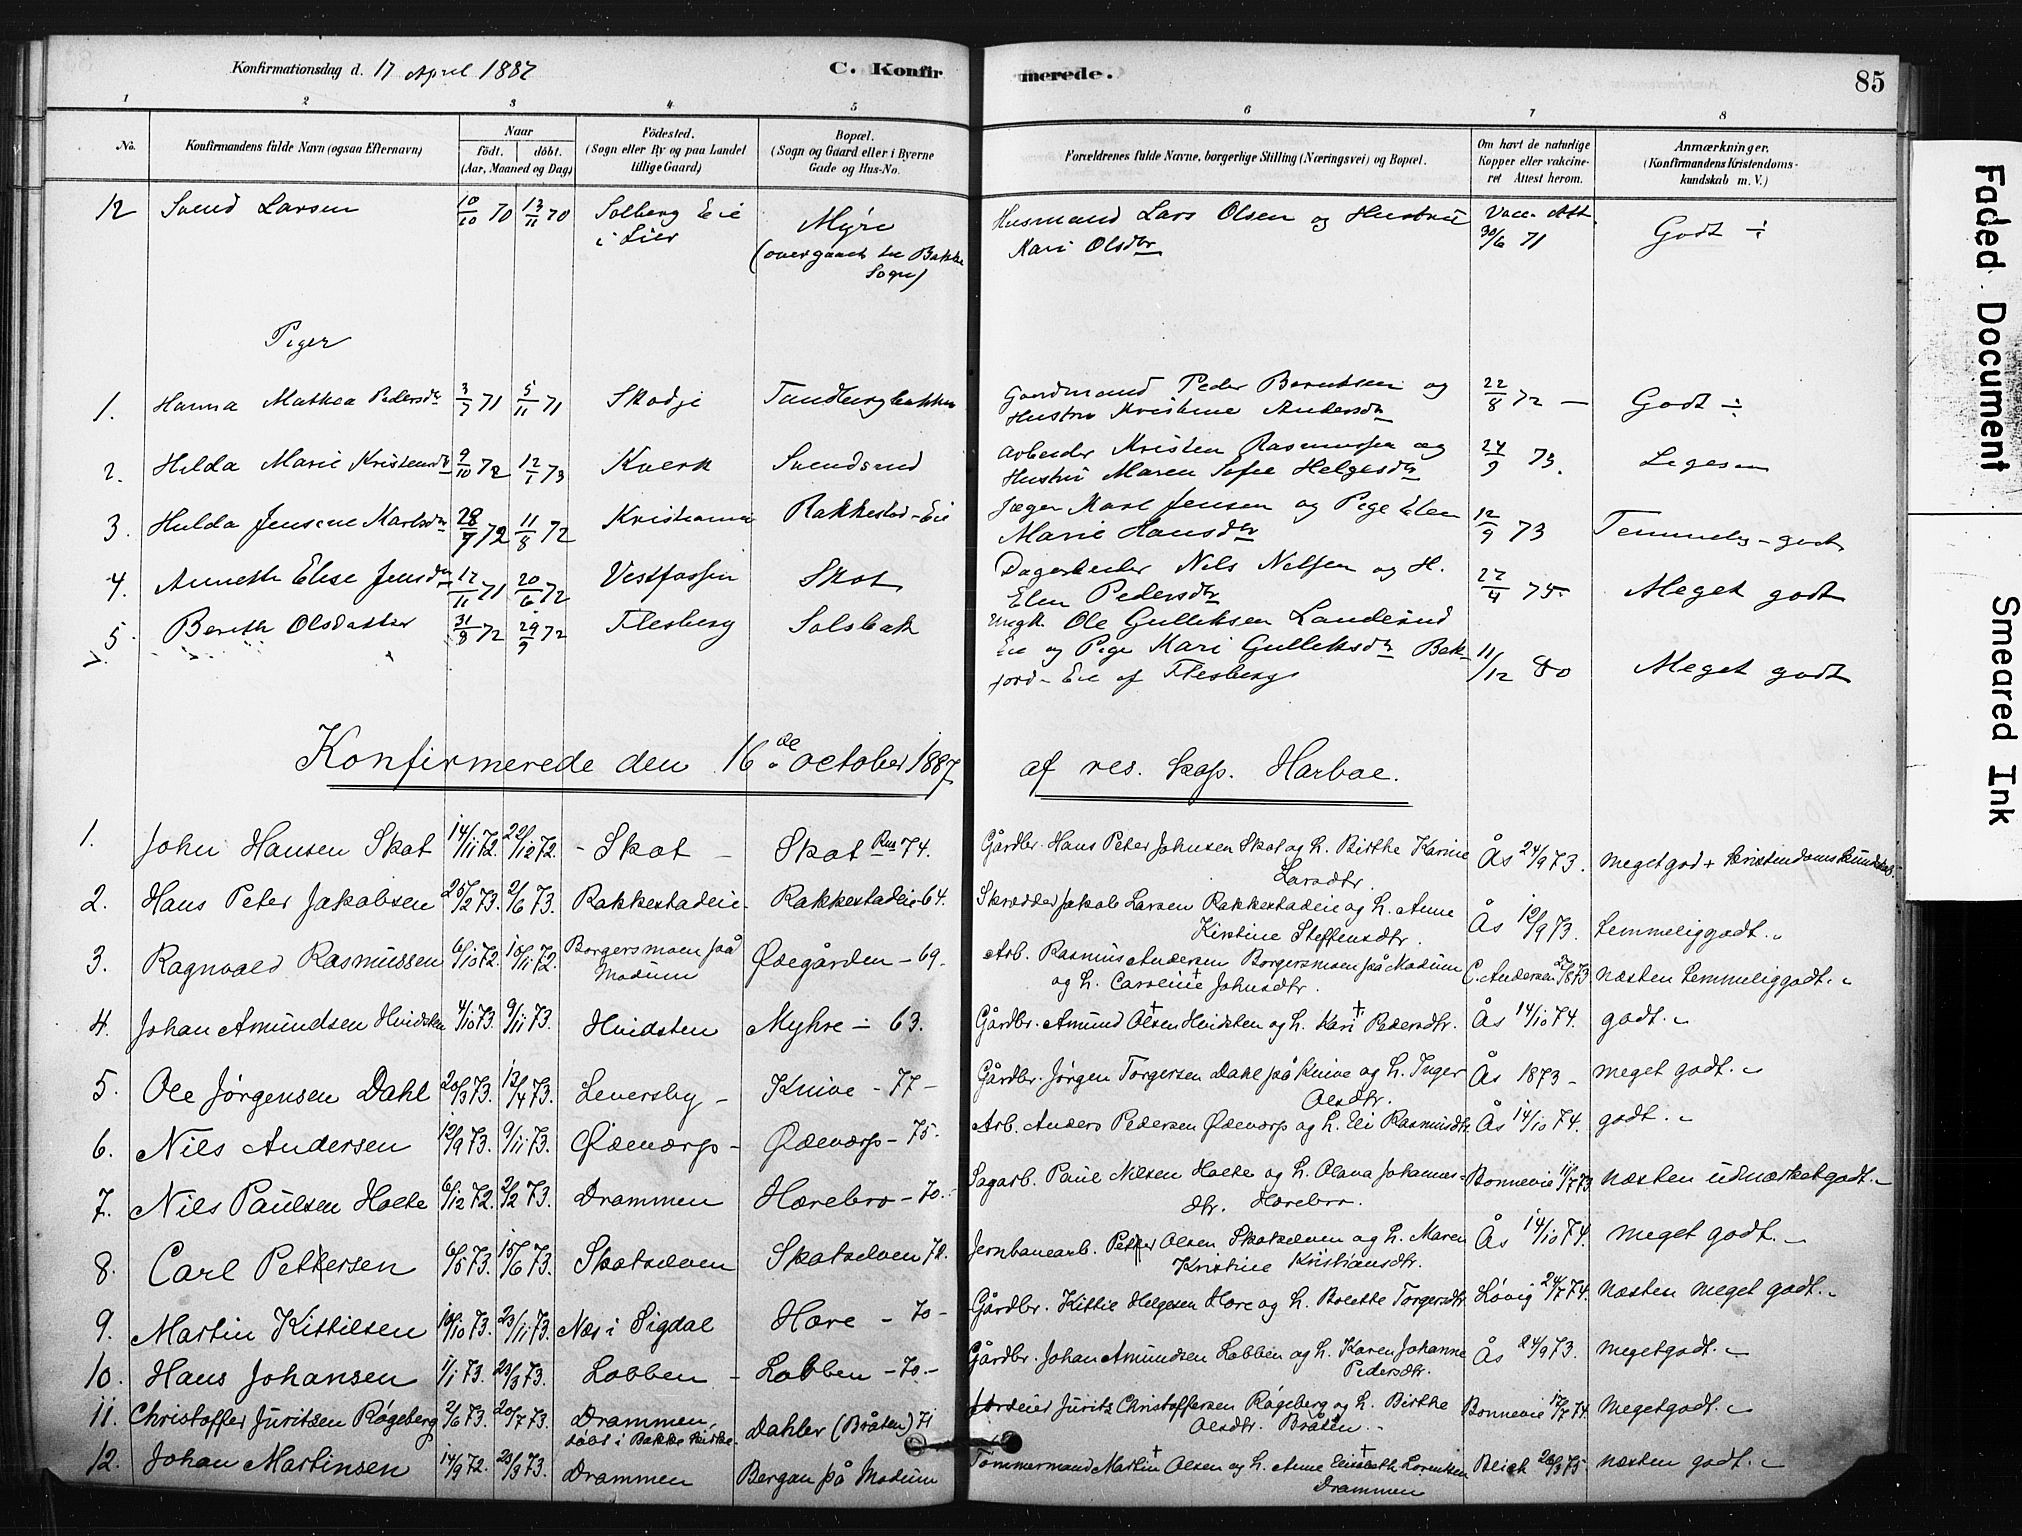 Konfirmationsdag d. 17 April 1887 C. Konfirmerede. 85
1 2 3 4 5 6 7 8
No. Konfirmandens fulde Navn (ogsaa Efternavn) Naar födt. döbt. (Aar, Maaned og Dag) Födested. (Sogn eller By og paa Landet tillige Gaard) Bopæl. (Sogn og Gaard eller i Byerne Gade og Hus-No. Forældrenes fulde Navne, borgerlige Stilling (Næringsvei) og Bopæl. Om havt de naturlige Kopper eller vakcineret Attest herom. Anmærkninger, (Konfirmandens Kristendomskundskab m. V.)
12 Svend Larsen 10/10 70 13/11 70 Solberg Eie i Lier Myre (overgaaet til Bakke Sogn) Husmand Lars Olsen og Hustru Kari Olsdtr Vacc. Att. 30/6 71 Godt ÷
Piger
1. Hanna Mathea Pedersdtr 3/7 71 5/11 71 Skodje Tandbergbakken Gaardmand Peder Berntsen og Hustru Kristine Andersdtr 22/8 72 — Godt ÷
2. Hilda Marie Kristensdtr 9/10 72 12/1 73 Kverk Svendsrud Arbeider Kristen Rasmussen og Hustru Maren Sofie Helgesdtr 24/9 73. Ligesaa
3. Hulda Jensine Karlsdtr 28/7 72 11/8 72 Kristiania Rakkestad-Eie Jæger Karl Jensen og Pige Elen Marie Hansdtr 12/9 73 Temmelig-godt
4. Anneth Elise Jensdtr 17/11 71 20/6 72 Vestfossen Skot Dagarbeider Nils Nilsen og H. Elen Pedersdtr 27/4 75 Meget godt
5. Berith Olsdatter 31/8 72 29/9 72 Flesberg Solsbak Ungk. Ole Gulliksen Landerud Eie og Pige Kari Gulliksdtr Bakjord-Eie af Flesberg 11/12 80 Meget godt
Konfirmerede den 16de October 1887 af res. kap. Harboe.
1. John Hansen Skot 14/11 72. 22/12 72. - Skot - Skot Rus 74. Gårdbr. Hans Peter Johnsen Skot og h. Birthe Karine Larsdtr. Ås 24/9 73. meget god + kristendomskundskab.
2. Hans Peter Jakobsen 25/2 73. 2/6 73. Rakkestadeie- Rakkestadeie-64. Skrædder Jakob Larsen Rakkestadeie og h. Anne Kirstine Steffensdtr. Ås 12/9 73. temmeliggodt. "
3. Ragnvald Rasmussen 6/10 72. 10/11 72. Borgersmoen på Modum Ødegården - 69. Arb. Rasmus Andersen Borgersmoen på Modum og h. Caroline + Johnsdtr. C. Andersen 27/8 73. næsten temmeliggodt. "
4. Johan Amundsen Hvidsten 4/10 73. 9/11 73. Hvidsten Myhre - 63. Gårdbr. Amund + Olsen Hvidsten og h. Kari + Pedersdtr. Ås 14/10 74. godt. "
5. Ole Jørgensen Dahl 20/3 73. 12/4 73. Leversby - Knive - 77 - Gårdbr. Jørgen Torgersen Dahl på Knive og h. Inger Olsdtr. Ås 1873 - meget godt. "
6. Nils Andersen 12/9 73. 9/11 73. Ødevarp - Ødevarp - 75. Arb. Anders Pedersen Ødevarp og h. Eli Rasmusdtr. Ås 14/10 74. godt. "
7. Nils Paulsen Holte 6/12 72. 2/2 73. Drammen Horebro - 70. - Sagarb. Paul Nilsen Holte og h. Olava Johannesdtr. Horebro. Bonnevie 11/7 73 næsten udmærket godt. "
8. Carl Pettersen 6/5 73. 15/6 73. Skotselven Skotselven 72. Jernbanearb. Petter Olsen Skotselven og h. Maren Kristine Kristiansdtr. Ås 14/10 74. meget godt. "
9. Martin Kittilsen 10/10 73. 23/11 73. Næs i Sigdal Hore - 70 - Gårdbr. Kittil Helgesen Hore og h. Bolette Torgersdtr Løvig 24/7 74. næsten meget godt. "
10. Hans Johansen 1/1 73. 23/3 73. Lobben - Lobben - 70. - Gårdbr. Johan Amundsen Lobben og h. Karen Johanne Pedersdtr. Ås 24/9 73. Megetgodt. "
11. Christoffer Juritsen Røgeberg 2/6 73. 20/7 73. Drammen, døbt i Bakke kirke. Dahler (Bråten) 71 Jordeier Jurits Christoffersen Røgeberg og h. Birthe Olsdtr. Bråten. - Bonnevie 17/7 74. Megetgodt. "
12. Johan Martinsen 14/9 72. 23/3 73. Drammen Bergan på Modum Tømmermand Martin + Olsen og h. Anne Elisabeth + Lorentsen Drammen Blich 26/3 75. næsten godt. "
Faded Document
Smeared Ink